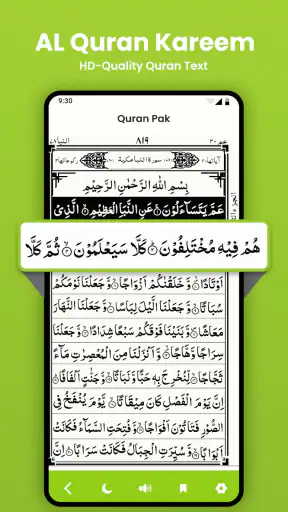 AL Quran Kareem
HD-Quality Quran Text
9:30
Quran Pak
النبا٧٨
٨١٩
عم ٣٠
بِسْمِ اللّٰهِ الرَّحْمٰنِ الرَّحِيْمِ
عَمَّ يَتَسَآءَلُوْنَ۝ عَنِ النَّبَاِ الْعَظِيْمِ۝ الَّذِيْ
هُمْ فِيْهِ مُخْتَلِفُوْنَ۝ كَلَّا سَيَعْلَمُوْنَ۝ ثُمَّ كَلَّا
اَوْتَادًا۝ وَّ خَلَقْنٰكُمْ اَزْوَاجًا۝ وَّ جَعَلْنَا نَوْمَكُمْ
سُبَاتًا۝ وَّ جَعَلْنَا الَّيْلَ لِبَاسًا۝ وَّ جَعَلْنَا النَّهَارَ
مَعَاشًا۝ وَّ بَنَيْنَا فَوْقَكُمْ سَبْعًا شِدَادًا۝ وَّ جَعَلْنَا
سِرَاجًا وَّهَّاجًا۝ وَّ اَنْزَلْنَا مِنَ الْمُعْصِرٰتِ مَآءً
ثَجَّاجًا۝ لِّنُخْرِجَ بِهٖ حَبًّا وَّ نَبَاتًا۝ وَّ جَنّٰتٍ اَلْفَافًا۝
اِنَّ يَوْمَ الْفَصْلِ كَانَ مِيْقَاتًا۝ يَّوْمَ يُنْفَخُ فِي
الصُّوْرِ فَتَاْتُوْنَ اَفْوَاجًا۝ وَّ فُتِحَتِ السَّمَآءُ فَكَانَتْ
اَبْوَابًا۝ وَّ سُيِّرَتِ الْجِبَالُ فَكَانَتْ سَرَابًا۝ اِنَّ